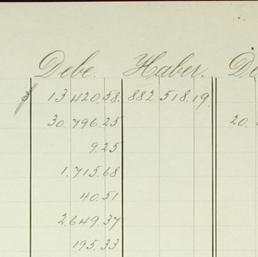 Debe. Haber. De
13 420.58. 882 518.19.
30.796.25 20.
9.25
1.715.68
40.51
2.649.37
195.33